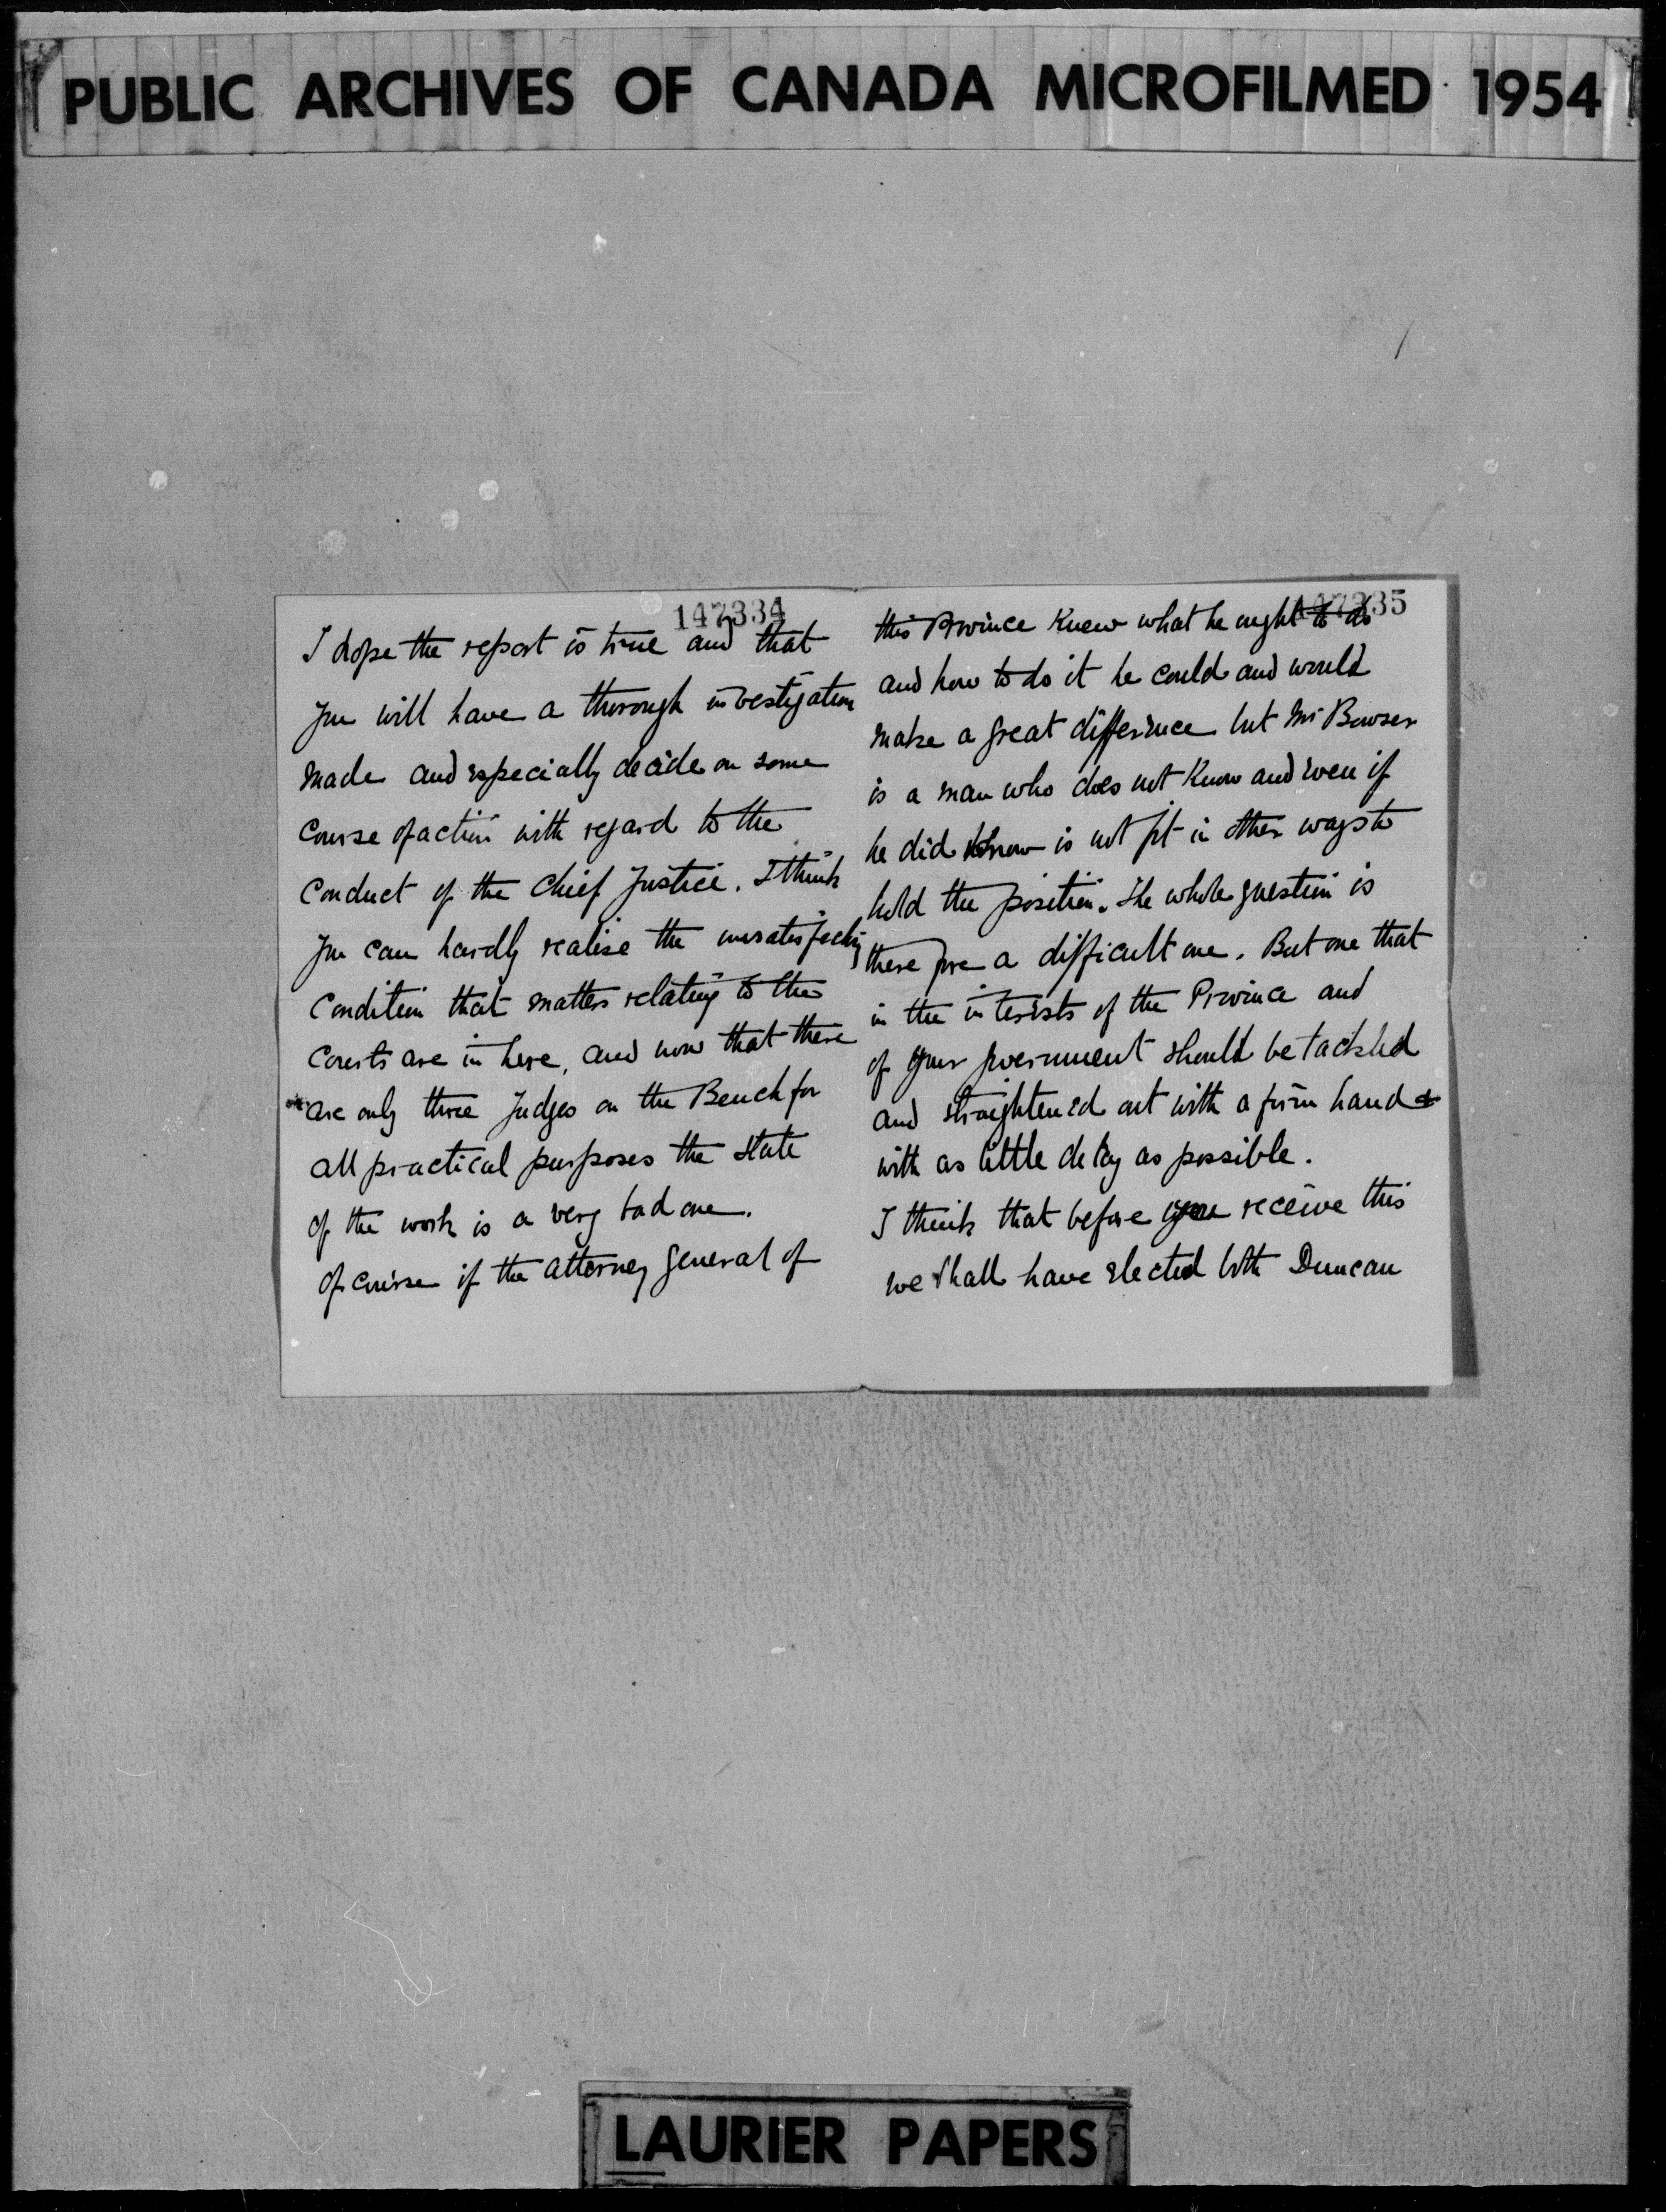 PUBLIC ARCHIVES OF CANADA MICROFILMED 1954
147334
I hope the report is true and that
you will have a thorough investigation
made and especially decide on some
course of action with regard to the
conduct of the Chief Justice. I think
you can hardly realise the unsatisfactory
condition that matters relating to the
Courts are in here, and now that there
are only three Judges on the Bench for
all practical purposes the state
of the work is a very bad one.
Of course if the Attorney General of
147335
this Province knew what he ought to do
and how to do it he could and would
make a great difference but Mr Bowser
is a man who does not know and even if
he did know is not fit in other ways to
hold the position. The whole question is
therefore a difficult one. But one that
in the interests of the Province and
of your government should be tackled
and straightened out with a firm hand &
with as little delay as possible.
I think that before you receive this
we shall have elected both Duncan
LAURIER PAPERS